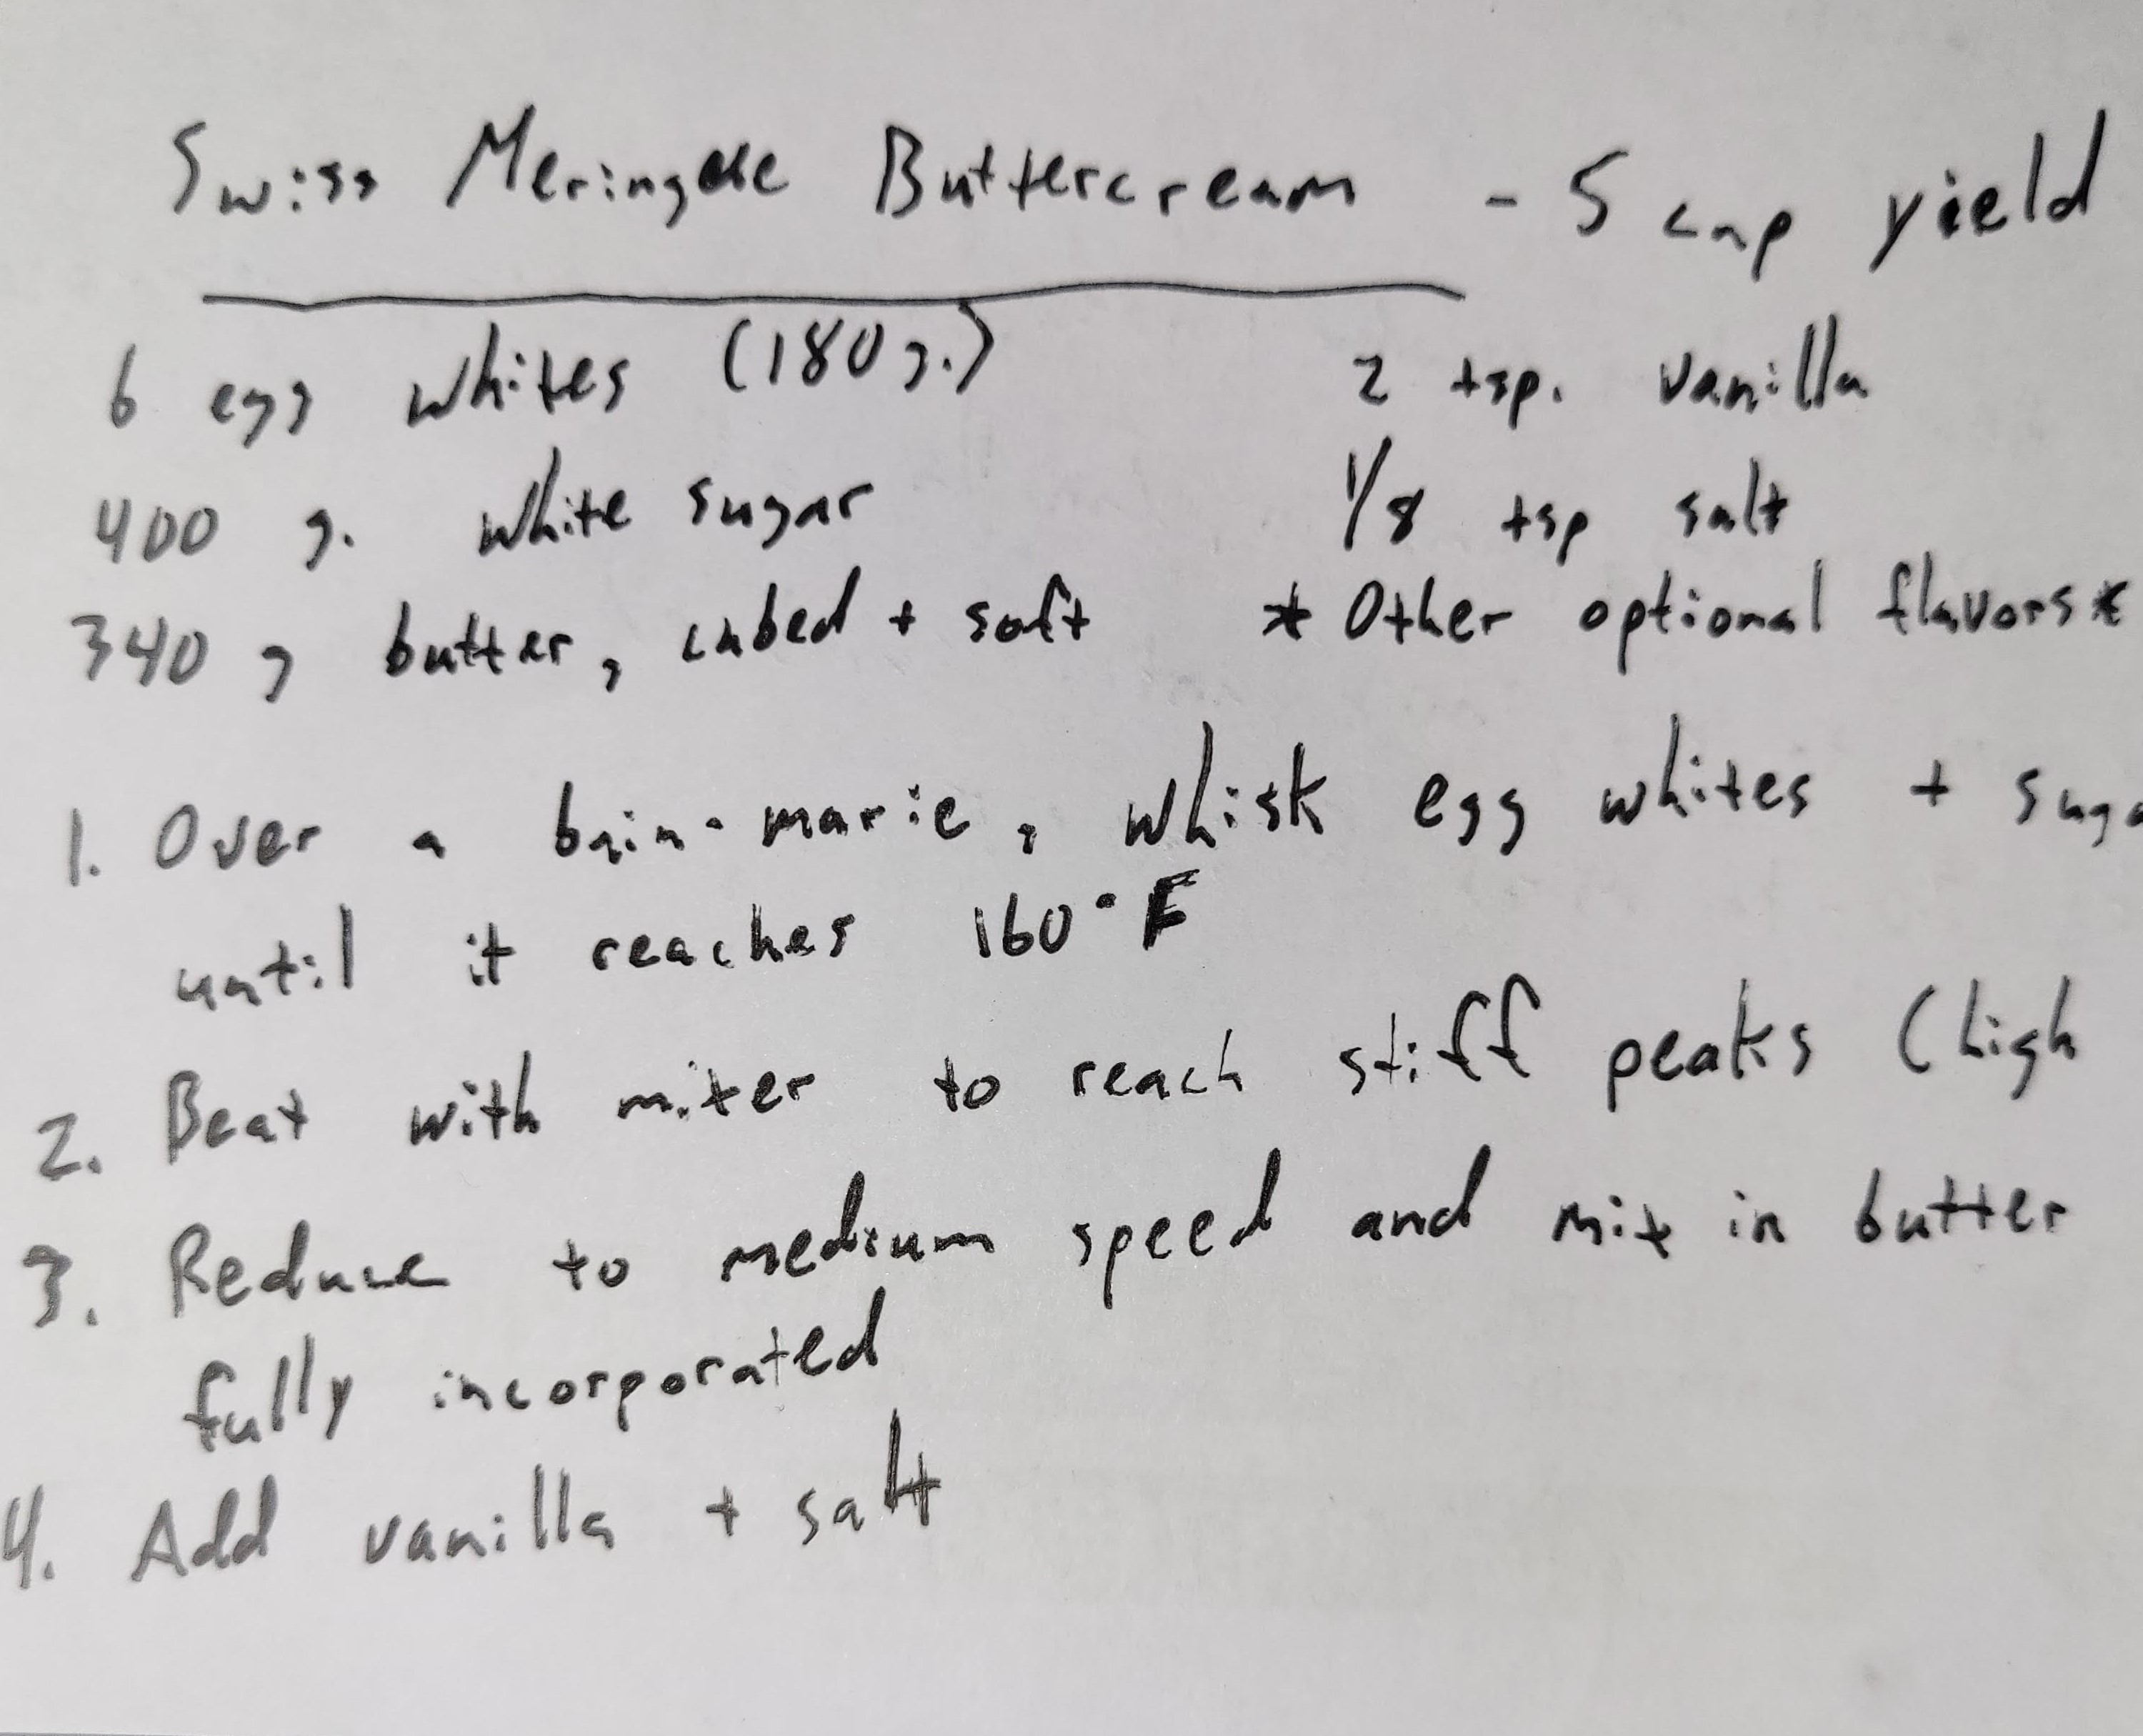 Swiss Meringue Buttercream - 5 cup yield
6 egg whites (180g.) 2 tsp. vanilla
400 g. white sugar 1/8 tsp salt
340 g butter, cubed + soft * Other optional flavors*
1. Over a bain-marie, whisk egg whites + suga
until it reaches 160°F
2. Beat with mixer to reach stiff peaks (high
3. Reduce to medium speed and mix in butter
fully incorporated
4. Add vanilla + salt